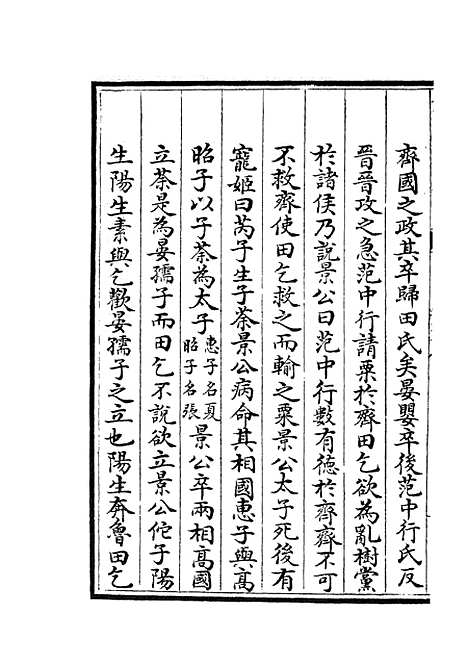 齊國之政其卒歸田氏矣晏嬰卒後范中行氏反
晉晉攻之急范中行請粟於齊田乞欲為亂樹黨
於諸侯乃說景公曰范中行數有德於齊齊不可
不救齊使田乞救之而輸之粟景公太子死後有
寵姬曰芮子生子荼景公病命其相國惠子與高
昭子以子荼為太子惠子名夏昭子名張景公卒兩相高國
立荼是為晏孺子而田乞不說欲立景公佗子陽
生陽生素與乞歡晏孺子之立也陽生奔魯田乞